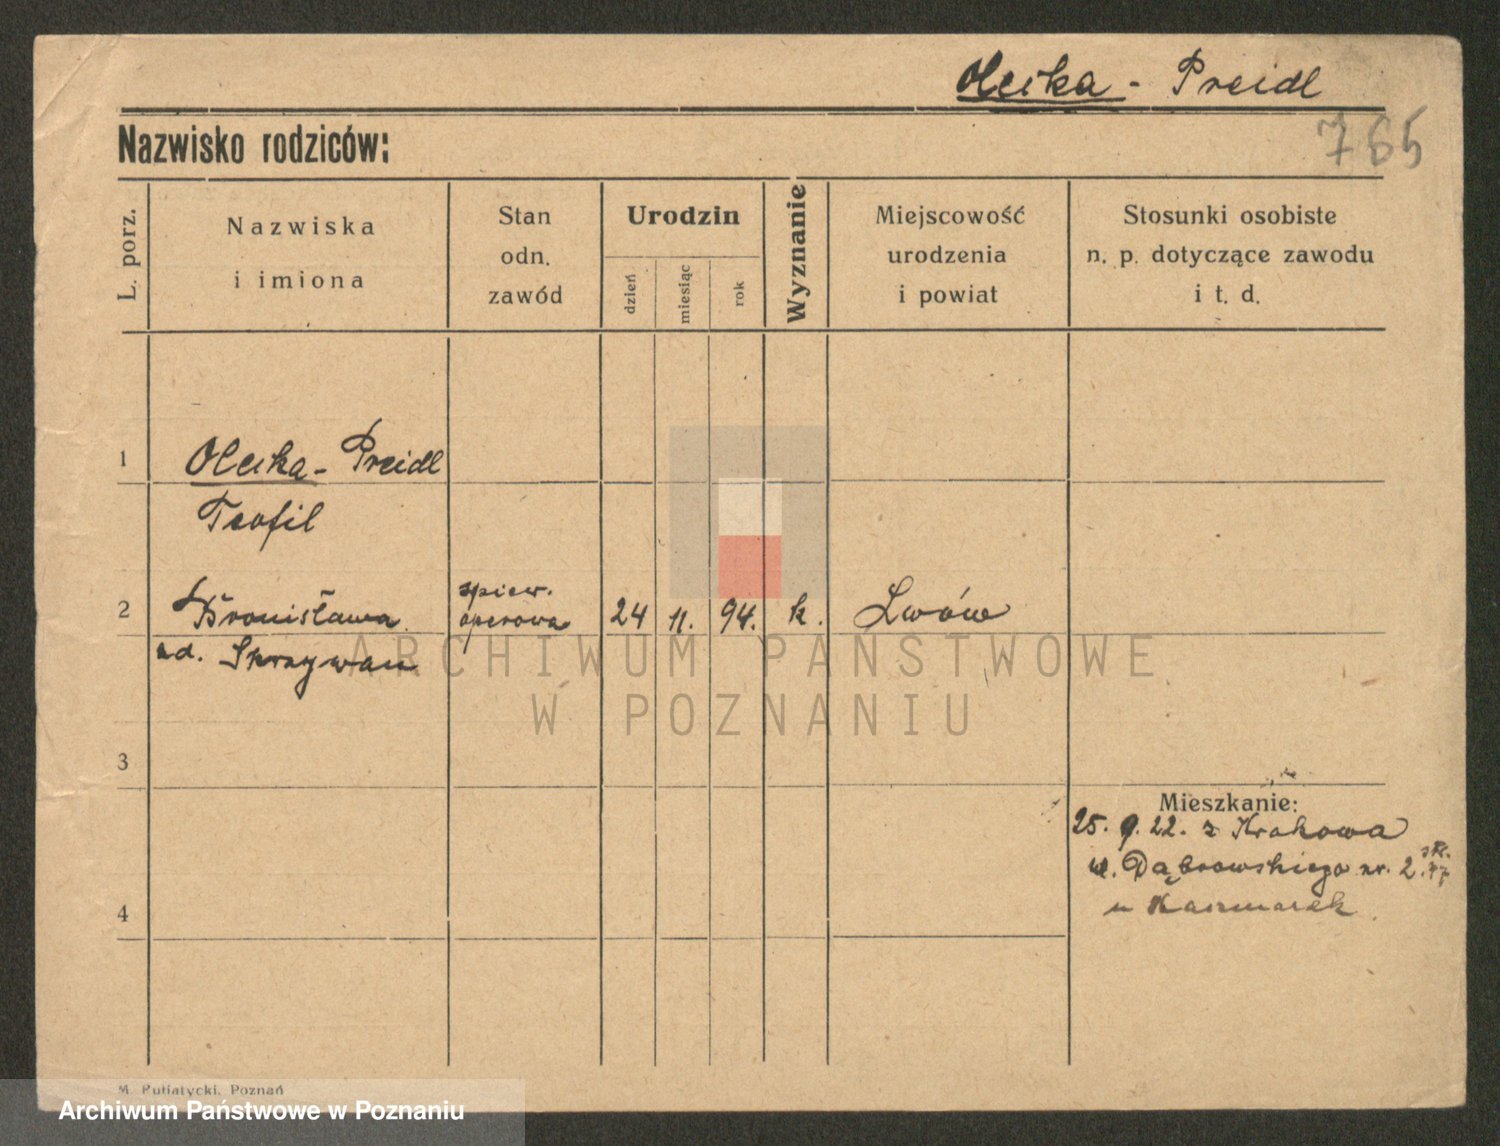 Oleska - Preidl
765
Nazwisko rodziców:
L. porz.
Nazwiska
i imiona
Stan
odn.
zawód
Urodzin
dzień
miesiąc
rok
Wyznanie
Miejscowość
urodzenia
i powiat
Stosunki osobiste
n. p. dotyczące zawodu
i t. d.
1
Oleska - Preidl
Teofil
2
Bronisława
zd. Skrzywan
śpiew.
operowa
24
11.
94.
k.
Lwów
ARCHIWUM PAŃSTWOWE
W POZNANIU
3
Mieszkanie:
25. 9. 22. z Krakowa
ul. Dąbrowskiego nr. 2.
u Kaczmarek
4
M. Putiatycki, Poznań
Archiwum Państwowe w Poznaniu